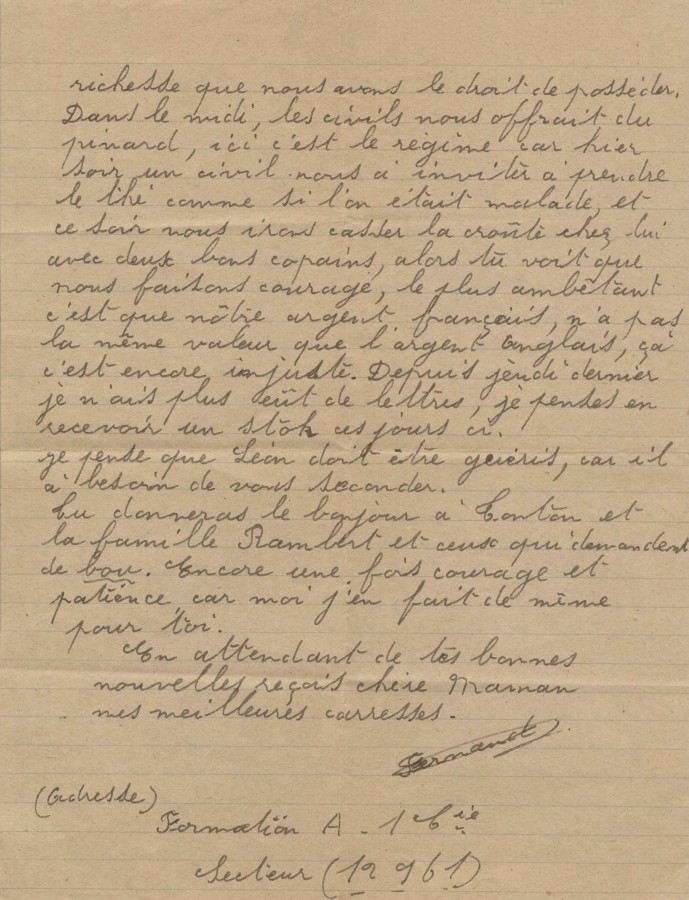 richesse que nous avons le droit de posséder.
Dans le midi, les civils nous offrait du
pinard, ici c'est le régime car hier
soir un civil nous à invitèr à prendre
le thé comme si l'on était malade, et
ce soir nous irons casser la croûte chez lui
avec deux bons copains, alors tu voit que
nous faisons courage, le plus ambêtant
c'est que nôtre argent français, n'a pas
la même valeur que l'argent Anglais, ça
c'est encore injuste. Depuis jeudi dernier
je n'ais plus eût de lettres, je penses en
recevoir un stok ces jours ci.
je pense que Léon doit être guéris, car il
à besoin de vous seconder.
Tu donneras le bonjour à Tonton et
la famille Rambert et ceux qui demandent
de bou. Encore une fois courage et
patience car moi j'en fait de même
pour toi.
En attendant de tes bonnes
nouvelles reçois chère Maman
mes meilleures carresses.
Fernand
(Adresse)
Formation A - 1 Cie
Secteur (12961)